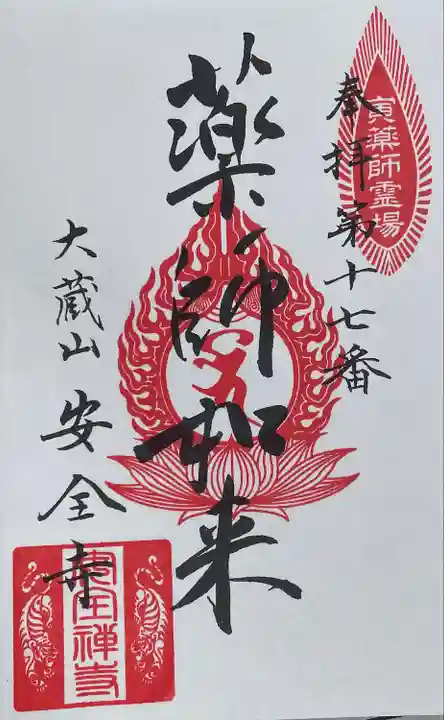 寅薬師霊場
奉拝第十七番
薬師如来
大蔵山安全寺
安全禅寺